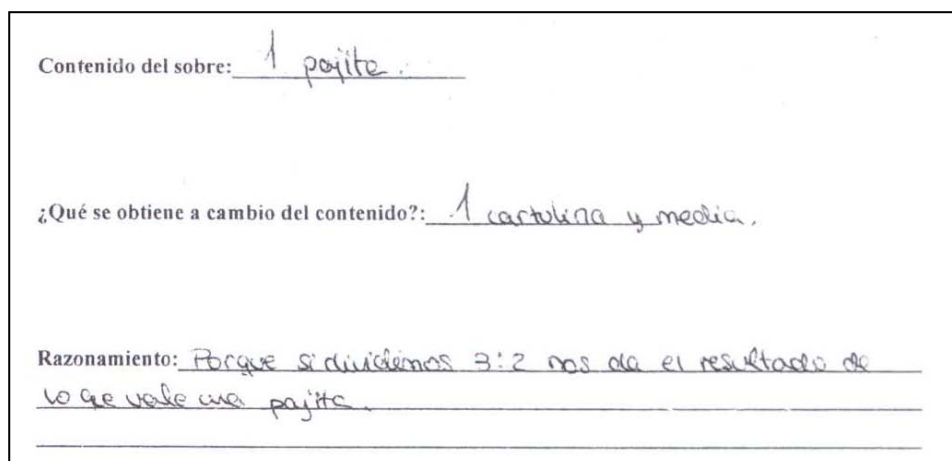 Contenido del sobre: 1 pajita.
¿Qué se obtiene a cambio del contenido?: 1 cartulina y media.
Razonamiento: Porque si dividimos 3:2 nos da el resultado de
lo que vale una pajita.